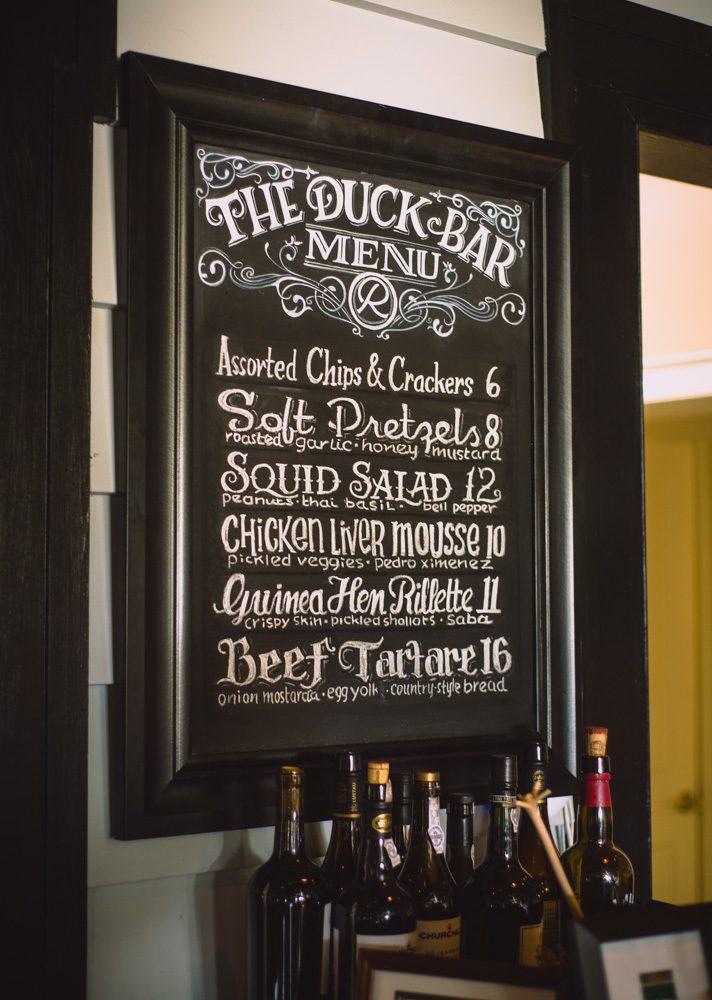 THE DUCK BAR
MENU
R
Assorted Chips & Crackers 6
Soft Pretzels 8
roasted garlic · honey mustard
SQUID SALAD 12
peanuts · thai basil · bell pepper
CHICKEN LIVER MOUSSE 10
pickled veggies · pedro ximenez
Guinea Hen Rillette 11
crispy skin · pickled shallots · saba
Beef Tartare 16
onion mostarda · egg yolk · country-style bread